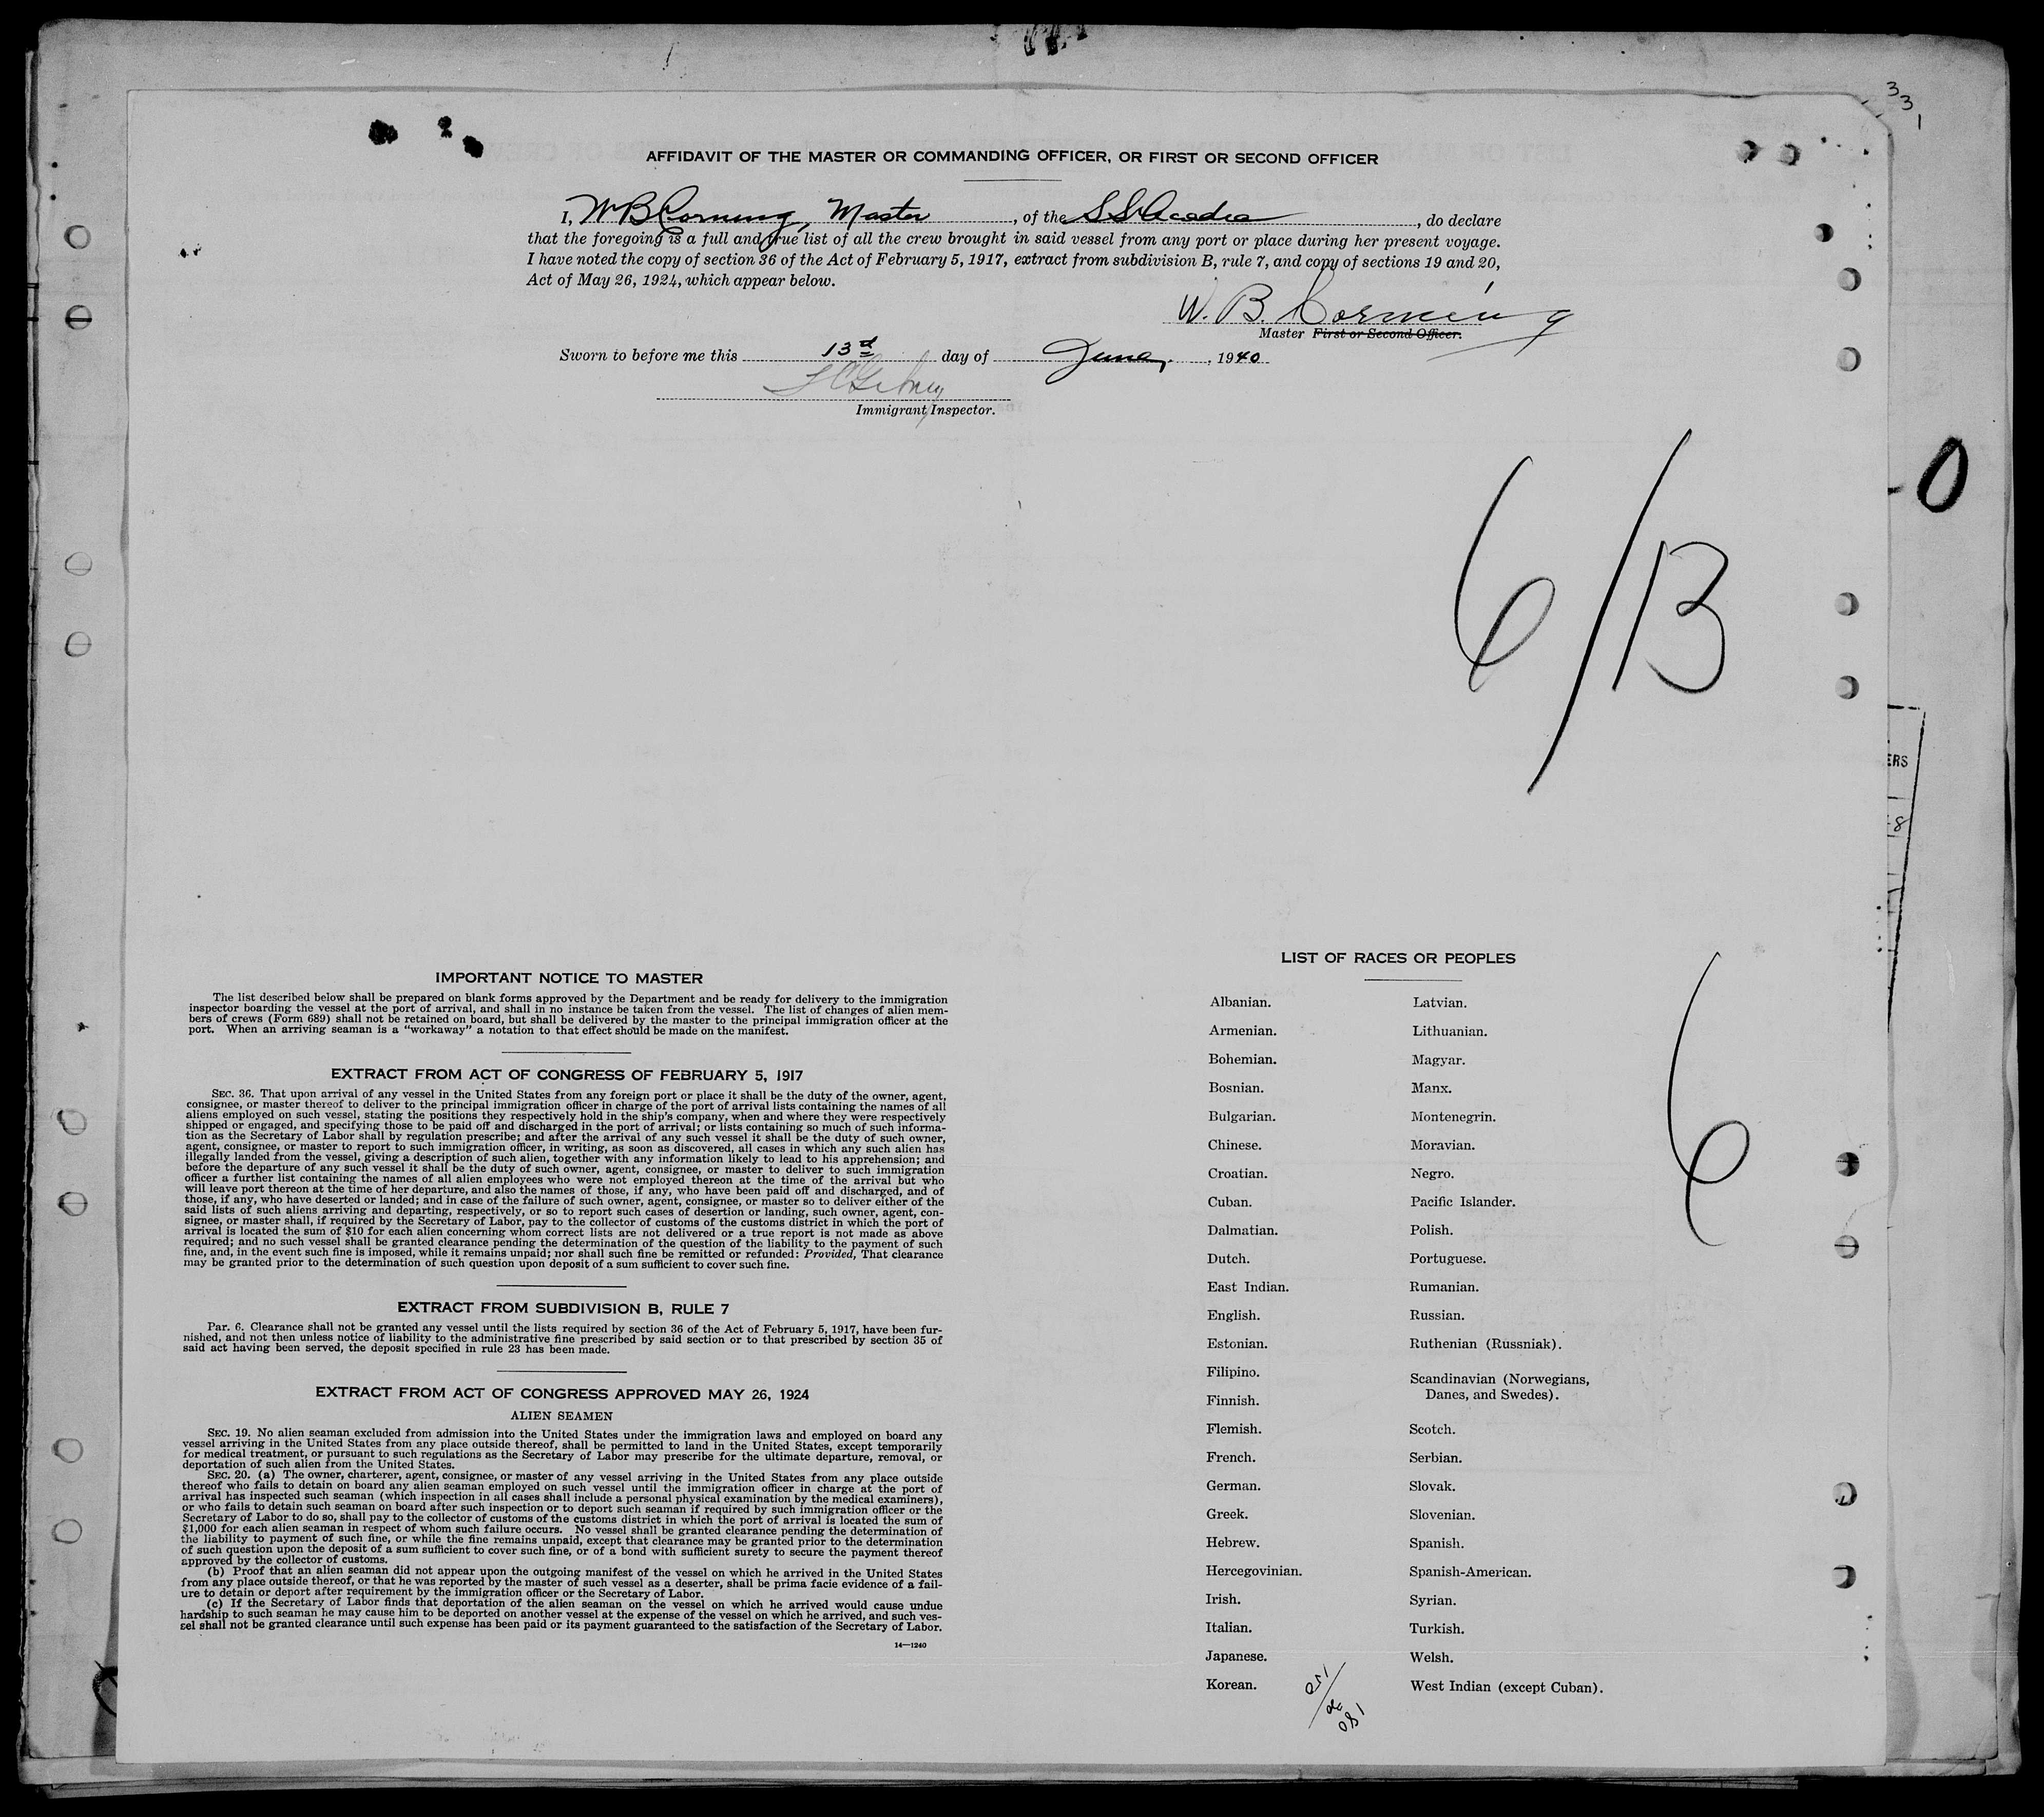 33
1
AFFIDAVIT OF THE MASTER OR COMMANDING OFFICER, OR FIRST OR SECOND OFFICER
I, W B Corning, Master, of the SS Acadia, do declare
that the foregoing is a full and true list of all the crew brought in said vessel from any port or place during her present voyage.
I have noted the copy of section 36 of the Act of February 5, 1917, extract from subdivision B, rule 7, and copy of sections 19 and 20,
Act of May 26, 1924, which appear below.
W. B. Corning
Master First or Second Officer.
Sworn to before me this 13d day of June, 1940
Immigrant Inspector.
0
6/13
ERS
-8
IMPORTANT NOTICE TO MASTER
The list described below shall be prepared on blank forms approved by the Department and be ready for delivery to the immigration
inspector boarding the vessel at the port of arrival, and shall in no instance be taken from the vessel. The list of changes of alien mem-
bers of crews (Form 689) shall not be retained on board, but shall be delivered by the master to the principal immigration officer at the
port. When an arriving seaman is a "workaway" a notation to that effect should be made on the manifest.
EXTRACT FROM ACT OF CONGRESS OF FEBRUARY 5, 1917
SEC. 36. That upon arrival of any vessel in the United States from any foreign port or place it shall be the duty of the owner, agent,
consignee, or master thereof to deliver to the principal immigration officer in charge of the port of arrival lists containing the names of all
aliens employed on such vessel, stating the positions they respectively hold in the ship's company, when and where they were respectively
shipped or engaged, and specifying those to be paid off and discharged in the port of arrival; or lists containing so much of such informa-
tion as the Secretary of Labor shall by regulation prescribe; and after the arrival of any such vessel it shall be the duty of such owner,
agent, consignee, or master to report to such immigration officer, in writing, as soon as discovered, all cases in which any such alien has
illegally landed from the vessel, giving a description of such alien, together with any information likely to lead to his apprehension; and
before the departure of any such vessel it shall be the duty of such owner, agent, consignee, or master to deliver to such immigration
officer a further list containing the names of all alien employees who were not employed thereon at the time of the arrival but who
will leave port thereon at the time of her departure, and also the names of those, if any, who have been paid off and discharged, and of
those, if any, who have deserted or landed; and in case of the failure of such owner, agent, consignee, or master so to deliver either of the
said lists of such aliens arriving and departing, respectively, or so to report such cases of desertion or landing, such owner, agent, con-
signee, or master shall, if required by the Secretary of Labor, pay to the collector of customs of the customs district in which the port of
arrival is located the sum of $10 for each alien concerning whom correct lists are not delivered or a true report is not made as above
required; and no such vessel shall be granted clearance pending the determination of the question of the liability to the payment of such
fine, and, in the event such fine is imposed, while it remains unpaid; nor shall such fine be remitted or refunded: Provided, That clearance
may be granted prior to the determination of such question upon deposit of a sum sufficient to cover such fine.
EXTRACT FROM SUBDIVISION B, RULE 7
Par. 6. Clearance shall not be granted any vessel until the lists required by section 36 of the Act of February 5, 1917, have been fur-
nished, and not then unless notice of liability to the administrative fine prescribed by said section or to that prescribed by section 35 of
said act having been served, the deposit specified in rule 23 has been made.
EXTRACT FROM ACT OF CONGRESS APPROVED MAY 26, 1924
ALIEN SEAMEN
SEC. 19. No alien seaman excluded from admission into the United States under the immigration laws and employed on board any
vessel arriving in the United States from any place outside thereof, shall be permitted to land in the United States, except temporarily
for medical treatment, or pursuant to such regulations as the Secretary of Labor may prescribe for the ultimate departure, removal, or
deportation of such alien from the United States.
SEC. 20. (a) The owner, charterer, agent, consignee, or master of any vessel arriving in the United States from any place outside
thereof who fails to detain on board any alien seaman employed on such vessel until the immigration officer in charge at the port of
arrival has inspected such seaman (which inspection in all cases shall include a personal physical examination by the medical examiners),
or who fails to detain such seaman on board after such inspection or to deport such seaman if required by such immigration officer or the
Secretary of Labor to do so, shall pay to the collector of customs of the customs district in which the port of arrival is located the sum of
$1,000 for each alien seaman in respect of whom such failure occurs. No vessel shall be granted clearance pending the determination of
the liability to payment of such fine, or while the fine remains unpaid, except that clearance may be granted prior to the determination
of such question upon the deposit of a sum sufficient to cover such fine, or of a bond with sufficient surety to secure the payment thereof
approved by the collector of customs.
(b) Proof that an alien seaman did not appear upon the outgoing manifest of the vessel on which he arrived in the United States
from any place outside thereof, or that he was reported by the master of such vessel as a deserter, shall be prima facie evidence of a fail-
ure to detain or deport after requirement by the immigration officer or the Secretary of Labor.
(c) If the Secretary of Labor finds that deportation of the alien seaman on the vessel on which he arrived would cause undue
hardship to such seaman he may cause him to be deported on another vessel at the expense of the vessel on which he arrived, and such ves-
sel shall not be granted clearance until such expense has been paid or its payment guaranteed to the satisfaction of the Secretary of Labor.
14—1240
LIST OF RACES OR PEOPLES
Albanian.
Armenian.
Bohemian.
Bosnian.
Bulgarian.
Chinese.
Croatian.
Cuban.
Dalmatian.
Dutch.
East Indian.
English.
Estonian.
Filipino.
Finnish.
Flemish.
French.
German.
Greek.
Hebrew.
Hercegovinian.
Irish.
Italian.
Japanese.
Korean.
Latvian.
Lithuanian.
Magyar.
Manx.
Montenegrin.
Moravian.
Negro.
Pacific Islander.
Polish.
Portuguese.
Rumanian.
Russian.
Ruthenian (Russniak).
Scandinavian (Norwegians,
Danes, and Swedes).
Scotch.
Serbian.
Slovak.
Slovenian.
Spanish.
Spanish-American.
Syrian.
Turkish.
Welsh.
West Indian (except Cuban).
6